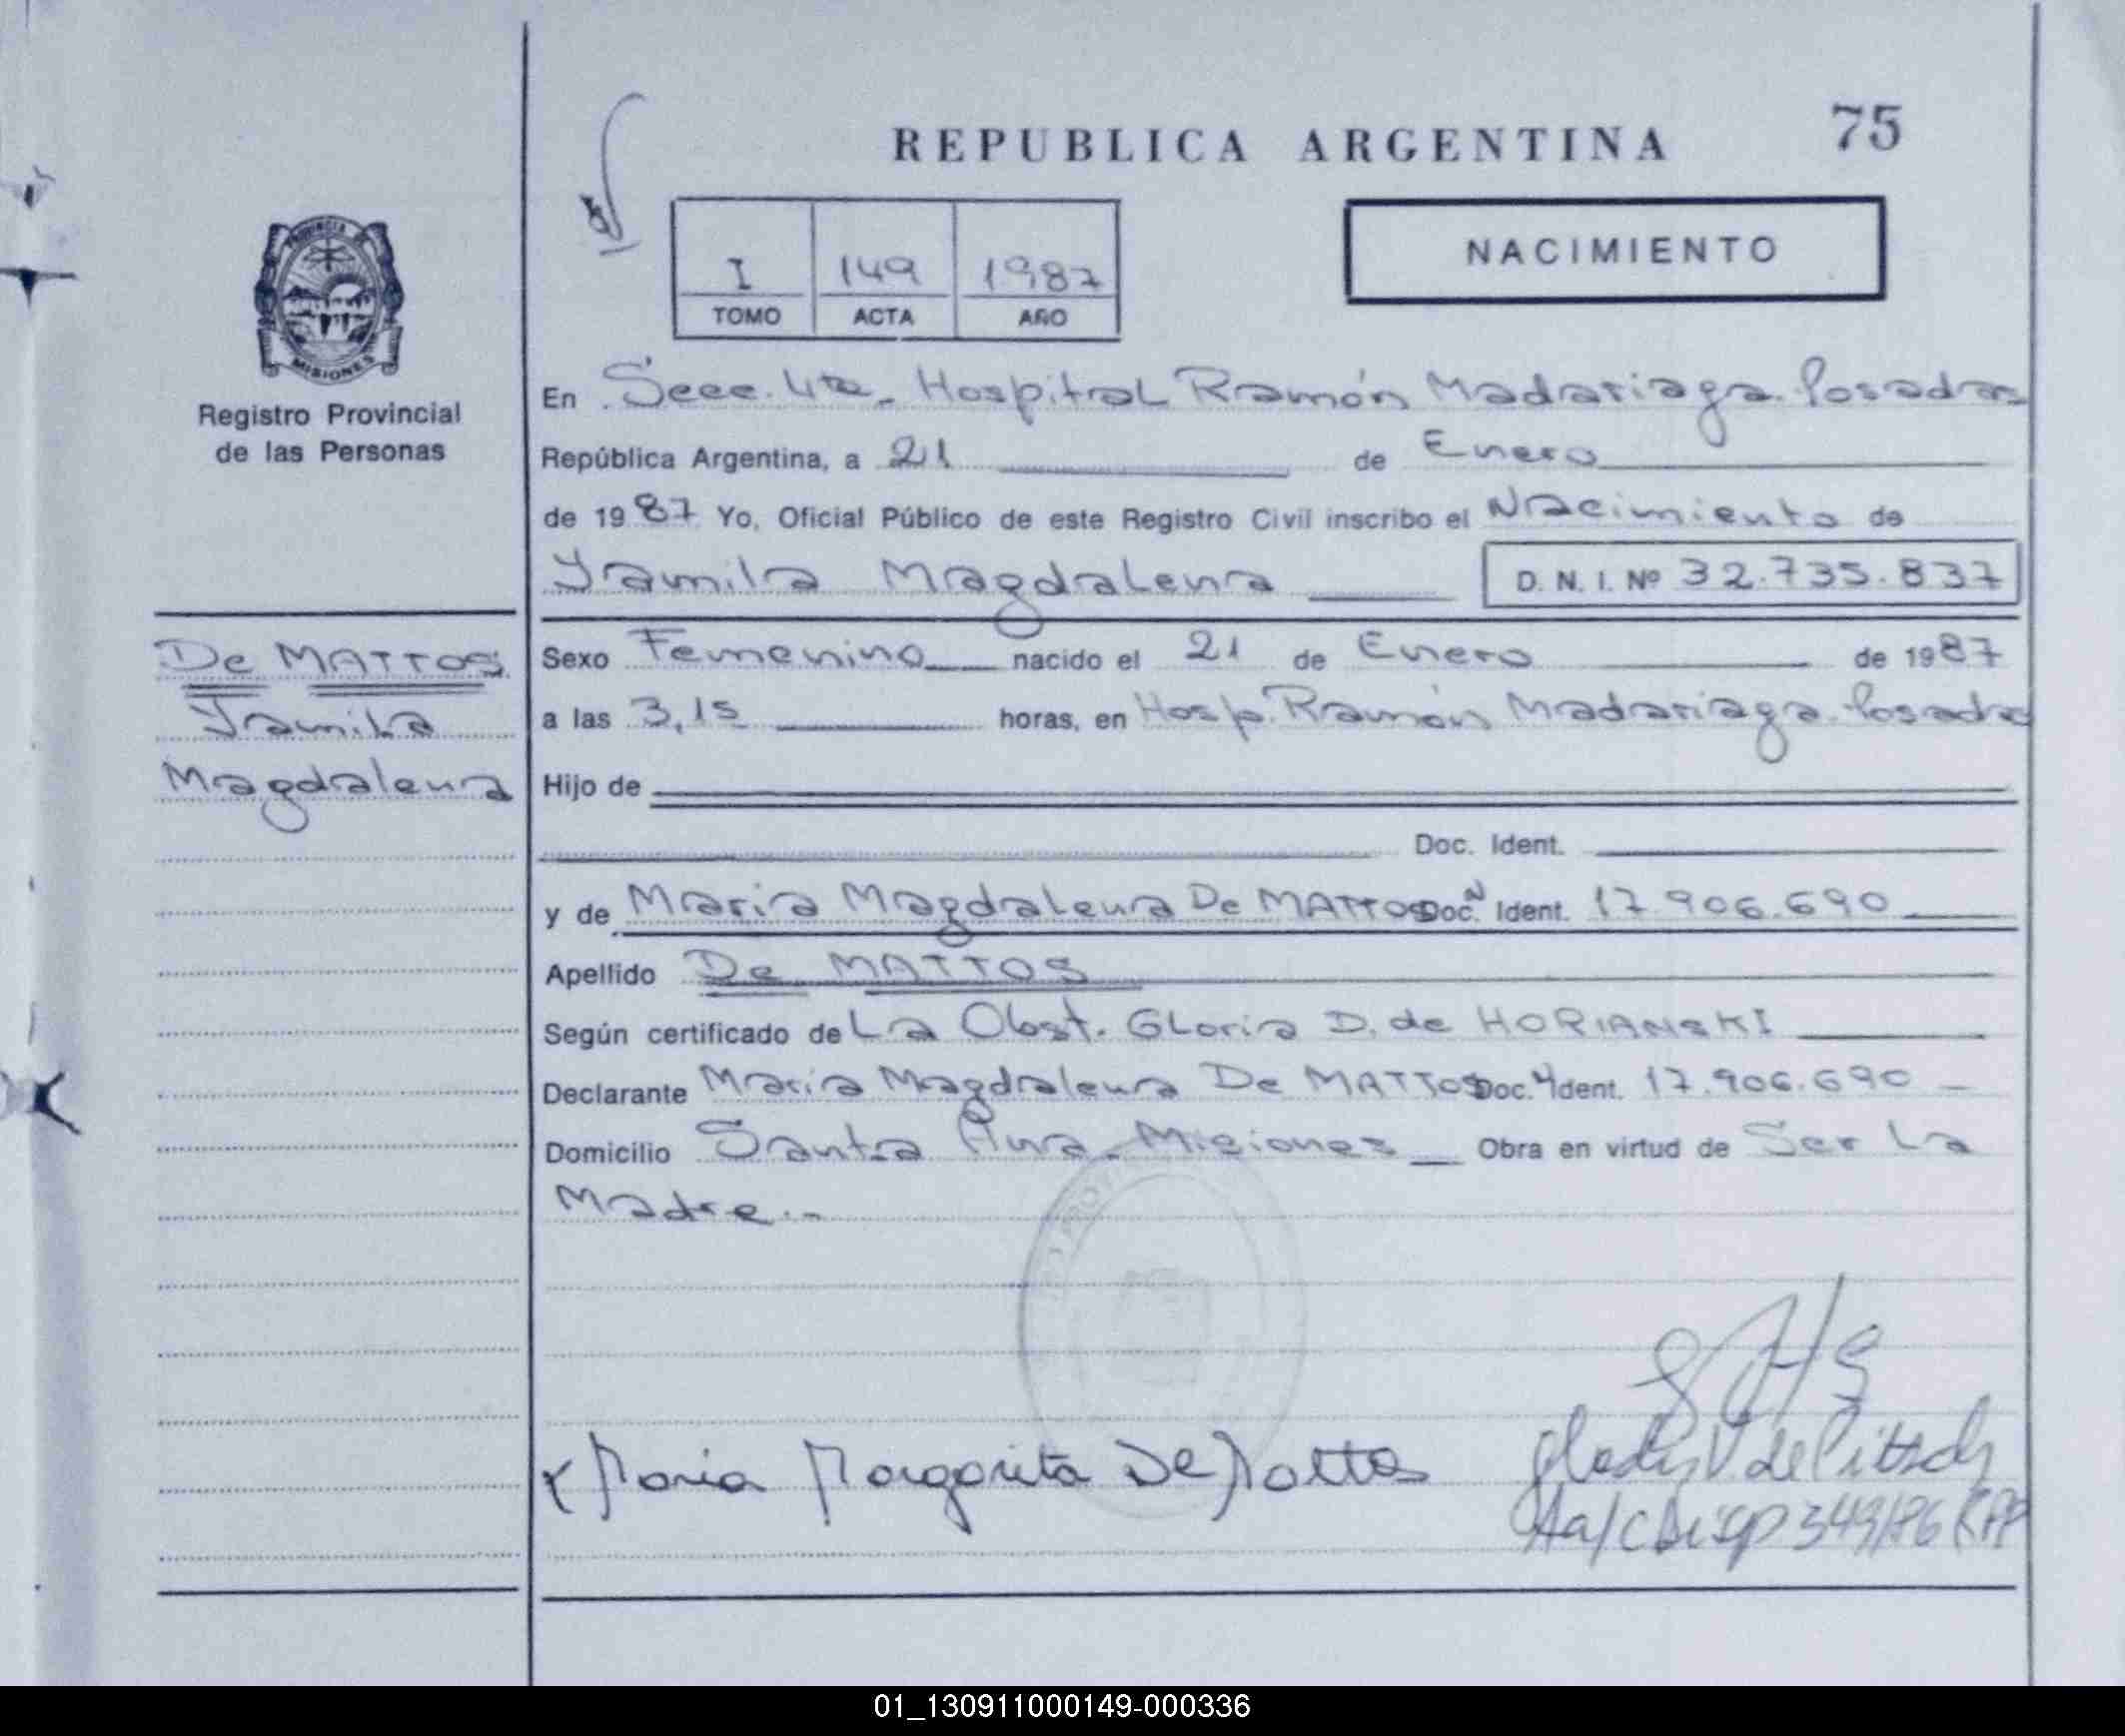 REPUBLICA ARGENTINA 75
I 149 1987
TOMO ACTA AÑO
NACIMIENTO
PROVINCIA DE
MISIONES
Registro Provincial
de las Personas
De MATTOS
Yamila
Magdalena
En Secc. 4ta. Hospital Ramón Madariaga. Posadas
República Argentina, a 21 de Enero
de 1987 Yo, Oficial Público de este Registro Civil inscribo el Nacimiento de
Yamila Magdalena D. N. I. Nº 32.735.837
Sexo Femenino nacido el 21 de Enero de 1987
a las 3,15 horas, en Hosp. Ramón Madariaga. Posadas
Hijo de
Doc. Ident.
y de Maria Magdalena De MATTOS Doc. Ident. 17.906.690
Apellido De MATTOS
Según certificado de La Obst. Gloria D. de HORIANSKI
Declarante Maria Magdalena De MATTOS Doc. Ident. 17.906.690
Domicilio Santa Ana - Misiones Obra en virtud de Ser La
Madre.-
x Maria Margarita De Mattos
Gladys V. de Pitsch
Disp 343/86 RPP
01_130911000149-000336